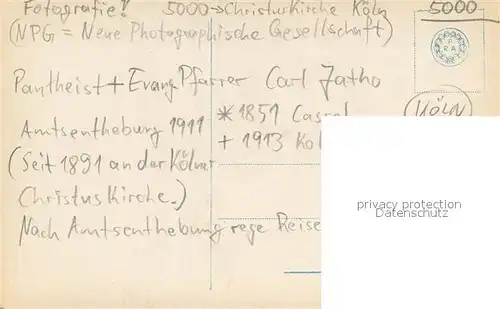 Fotografie! 5000→Christuskirche Köln 5000
(NPG = Neue Photographische Gesellschaft)
Pantheist + Evang. Pfarrer Carl Jatho
* 1851 Cassel KÖLN
Amtsenthebung 1911 + 1913
(Seit 1891 an der Kölner
Christuskirche.)
Nach Amtsenthebung rege Reise
privacy protection
Datenschutz